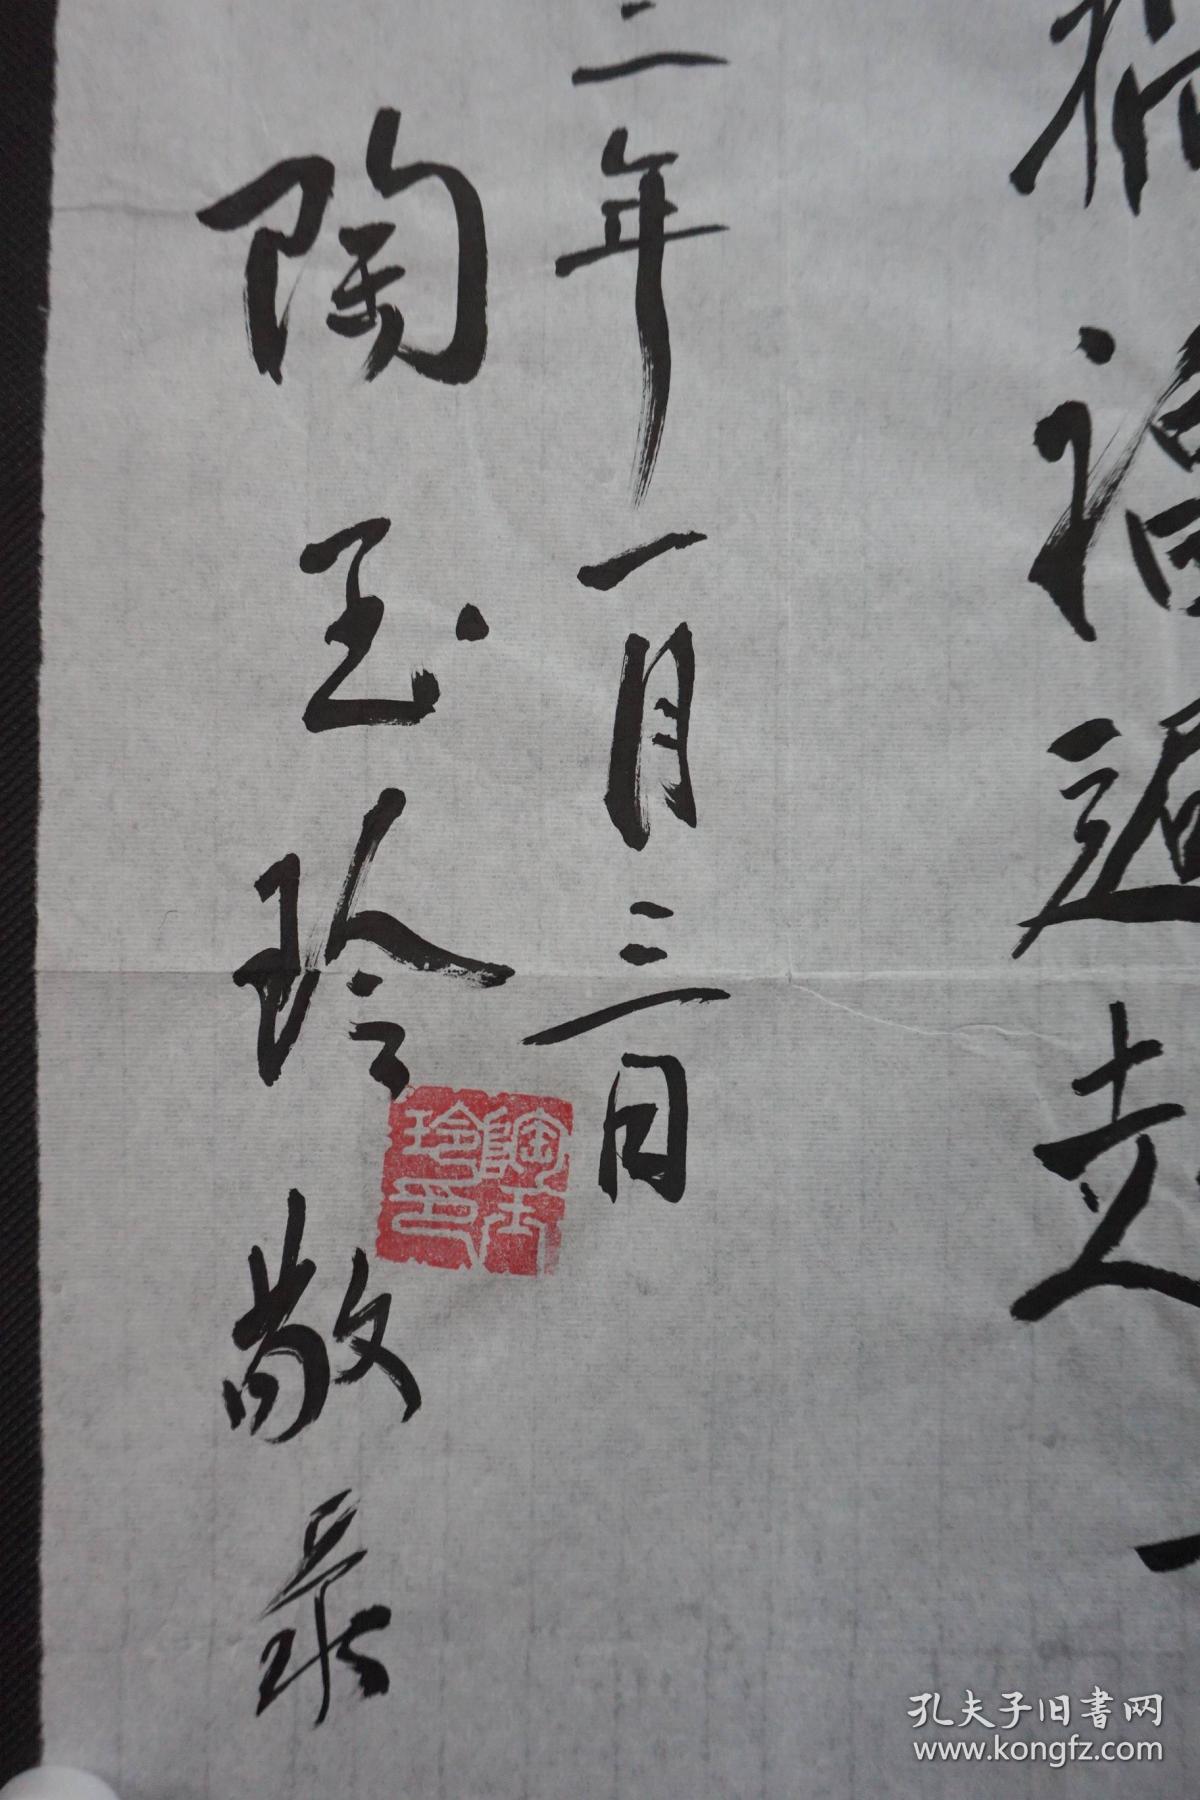 福遍
年一月三日
陶玉玲敬录
陶玉
玲印
孔夫子旧书网
www.kongfz.com